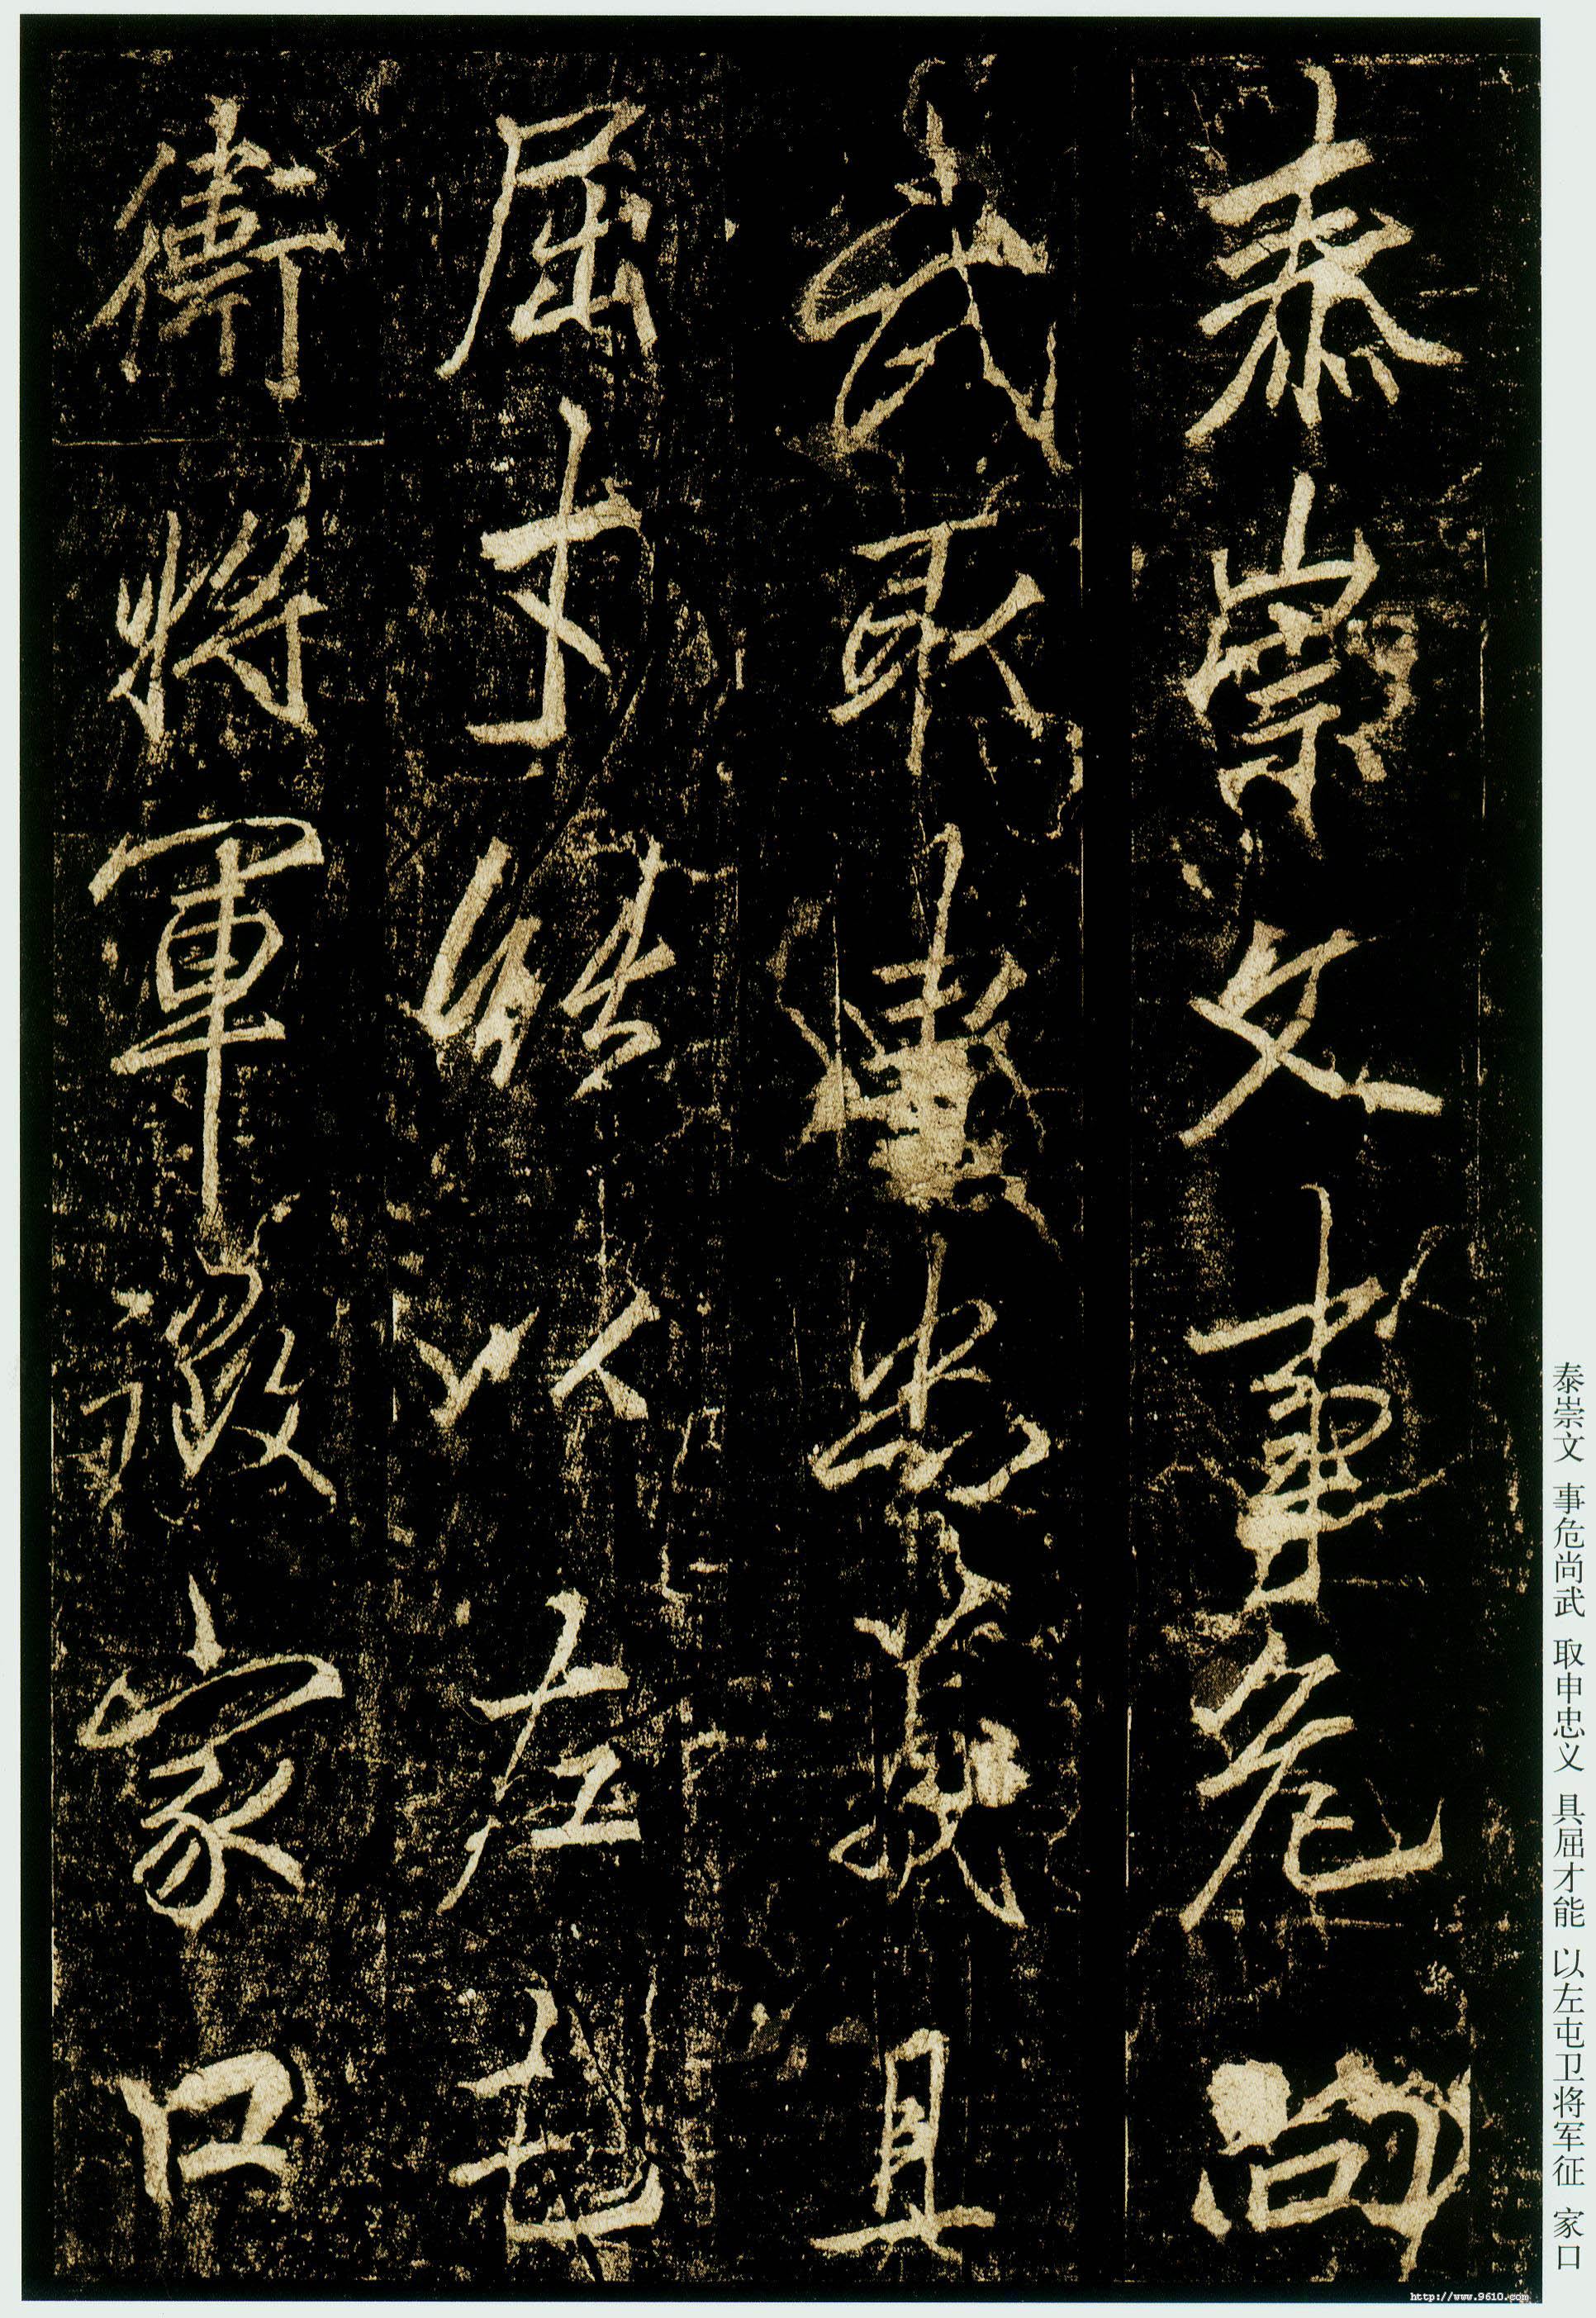 泰崇文事危尚
武取忠義具
屈才能以左屯
衛將軍徵家口
泰崇文 事危尚武 取申忠义 具屈才能 以左屯卫将军征 家口
http://www.9610.com